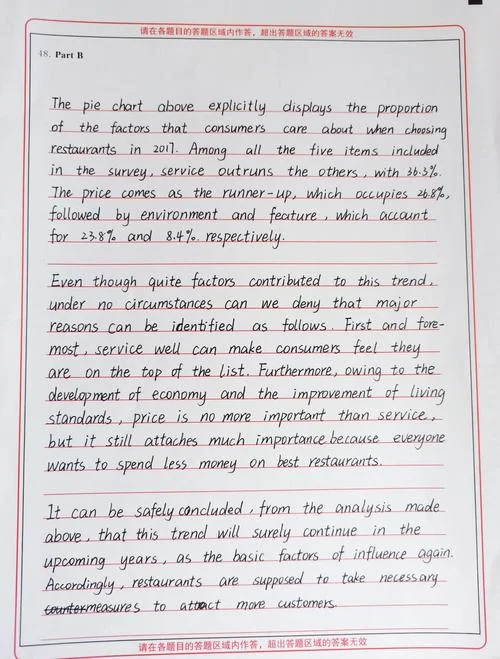 请在各题目的答题区域内作答，超出答题区域的答案无效
48. Part B
The pie chart above explicitly displays the proportion
of the factors that consumers care about when choosing
restaurants in 2017. Among all the five items included
in the survey, service outruns the others, with 36.3%.
The price comes as the runner-up, which occupies 26.8%,
followed by environment and feature, which account
for 23.8% and 8.4%. respectively.
Even though quite factors contributed to this trend,
under no circumstances can we deny that major
reasons can be identified as follows. First and fore-
most, service well can make consumers feel they
are on the top of the list. Furthermore, owing to the
development of economy and the improvement of living
standards, price is no more important than service,
but it still attaches much importance because everyone
wants to spend less money on best restaurants.
It can be safely concluded, from the analysis made
above, that this trend will surely continue in the
upcoming years, as the basic factors of influence again.
Accordingly, restaurants are supposed to take necessary
countermeasures to attract more customers.
请在各题目的答题区域内作答，超出答题区域的答案无效